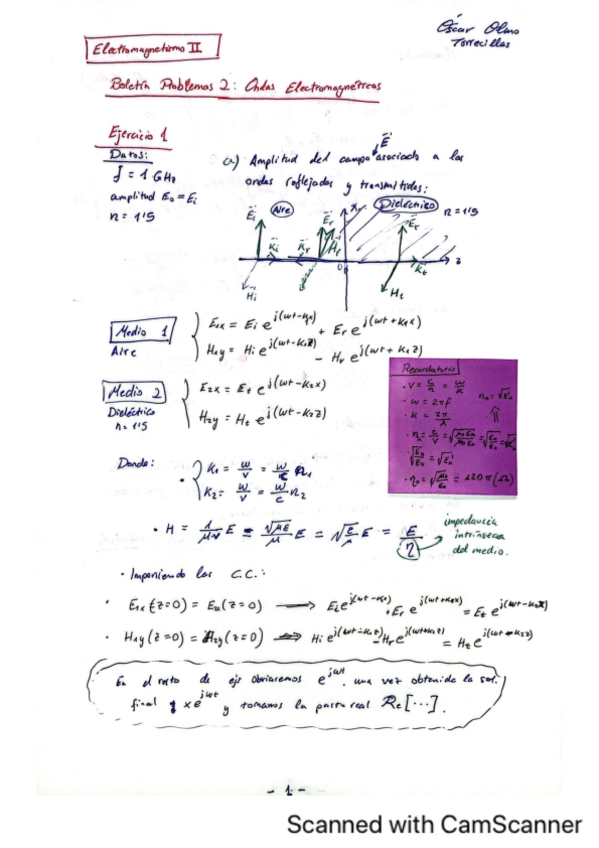 Óscar Olmo
Torrecillas
Electromagnetismo II
Boletín Problemas 2: Ondas Electromagnéticas
Ejercicio 1
Datos:
f = 1 GHz
amplitud E₀ = Eᵢ
n = 1'5
a) Amplitud del campo E⃗ asociado a las
ondas reflejadas y transmitidas:
Aire
Dieléctrico
n = 1'5
E⃗ᵢ
E⃗ᵣ
X
E⃗ₜ
K⃗ᵢ
K⃗ᵣ
H⃗ᵣ
0
Kₜ
z
H⃗ᵢ
Hₜ
Medio 1
Aire
E₁ₓ = Eᵢ e^j(wt-k₁x) + Eᵣ e^j(wt+k₁x)
H₁y = Hᵢ e^j(wt-k₁z) - Hᵣ e^j(wt+k₁z)
Medio 2
Dieléctrico
n = 1'5
E₂ₓ = Eₜ e^j(wt-k₂x)
H₂y = Hₜ e^j(wt-k₂z)
Recordatorio
· v = c/n = w/k
· w = 2πf
· k = 2π/λ
Donde:
· K₁ = w/v = w/c n₁
K₂ = w/v = w/c n₂
· H = 1/μv E = √με/μ E = √ε/μ E = E/η
impedancia
intrínseca
del medio.
· Imponiendo las C.C.:
· E₁ₓ(z=0) = E₂ₓ(z=0) ⟶ Eᵢe^j(wt-k₁x) + Eᵣ e^j(wt+k₁x) = Eₜ e^j(wt-k₂x)
· H₁y(z=0) = H₂y(z=0) ⟶ Hᵢ e^j(wt-k₁z) - Hᵣ e^j(wt+k₁z) = Hₜ e^j(wt-k₂z)
En el resto de ejs obviaremos e^jwt, una vez obtenida la sol.
final y x e^jwt y tomamos la parte real Re[...].
- 1 -
Scanned with CamScanner